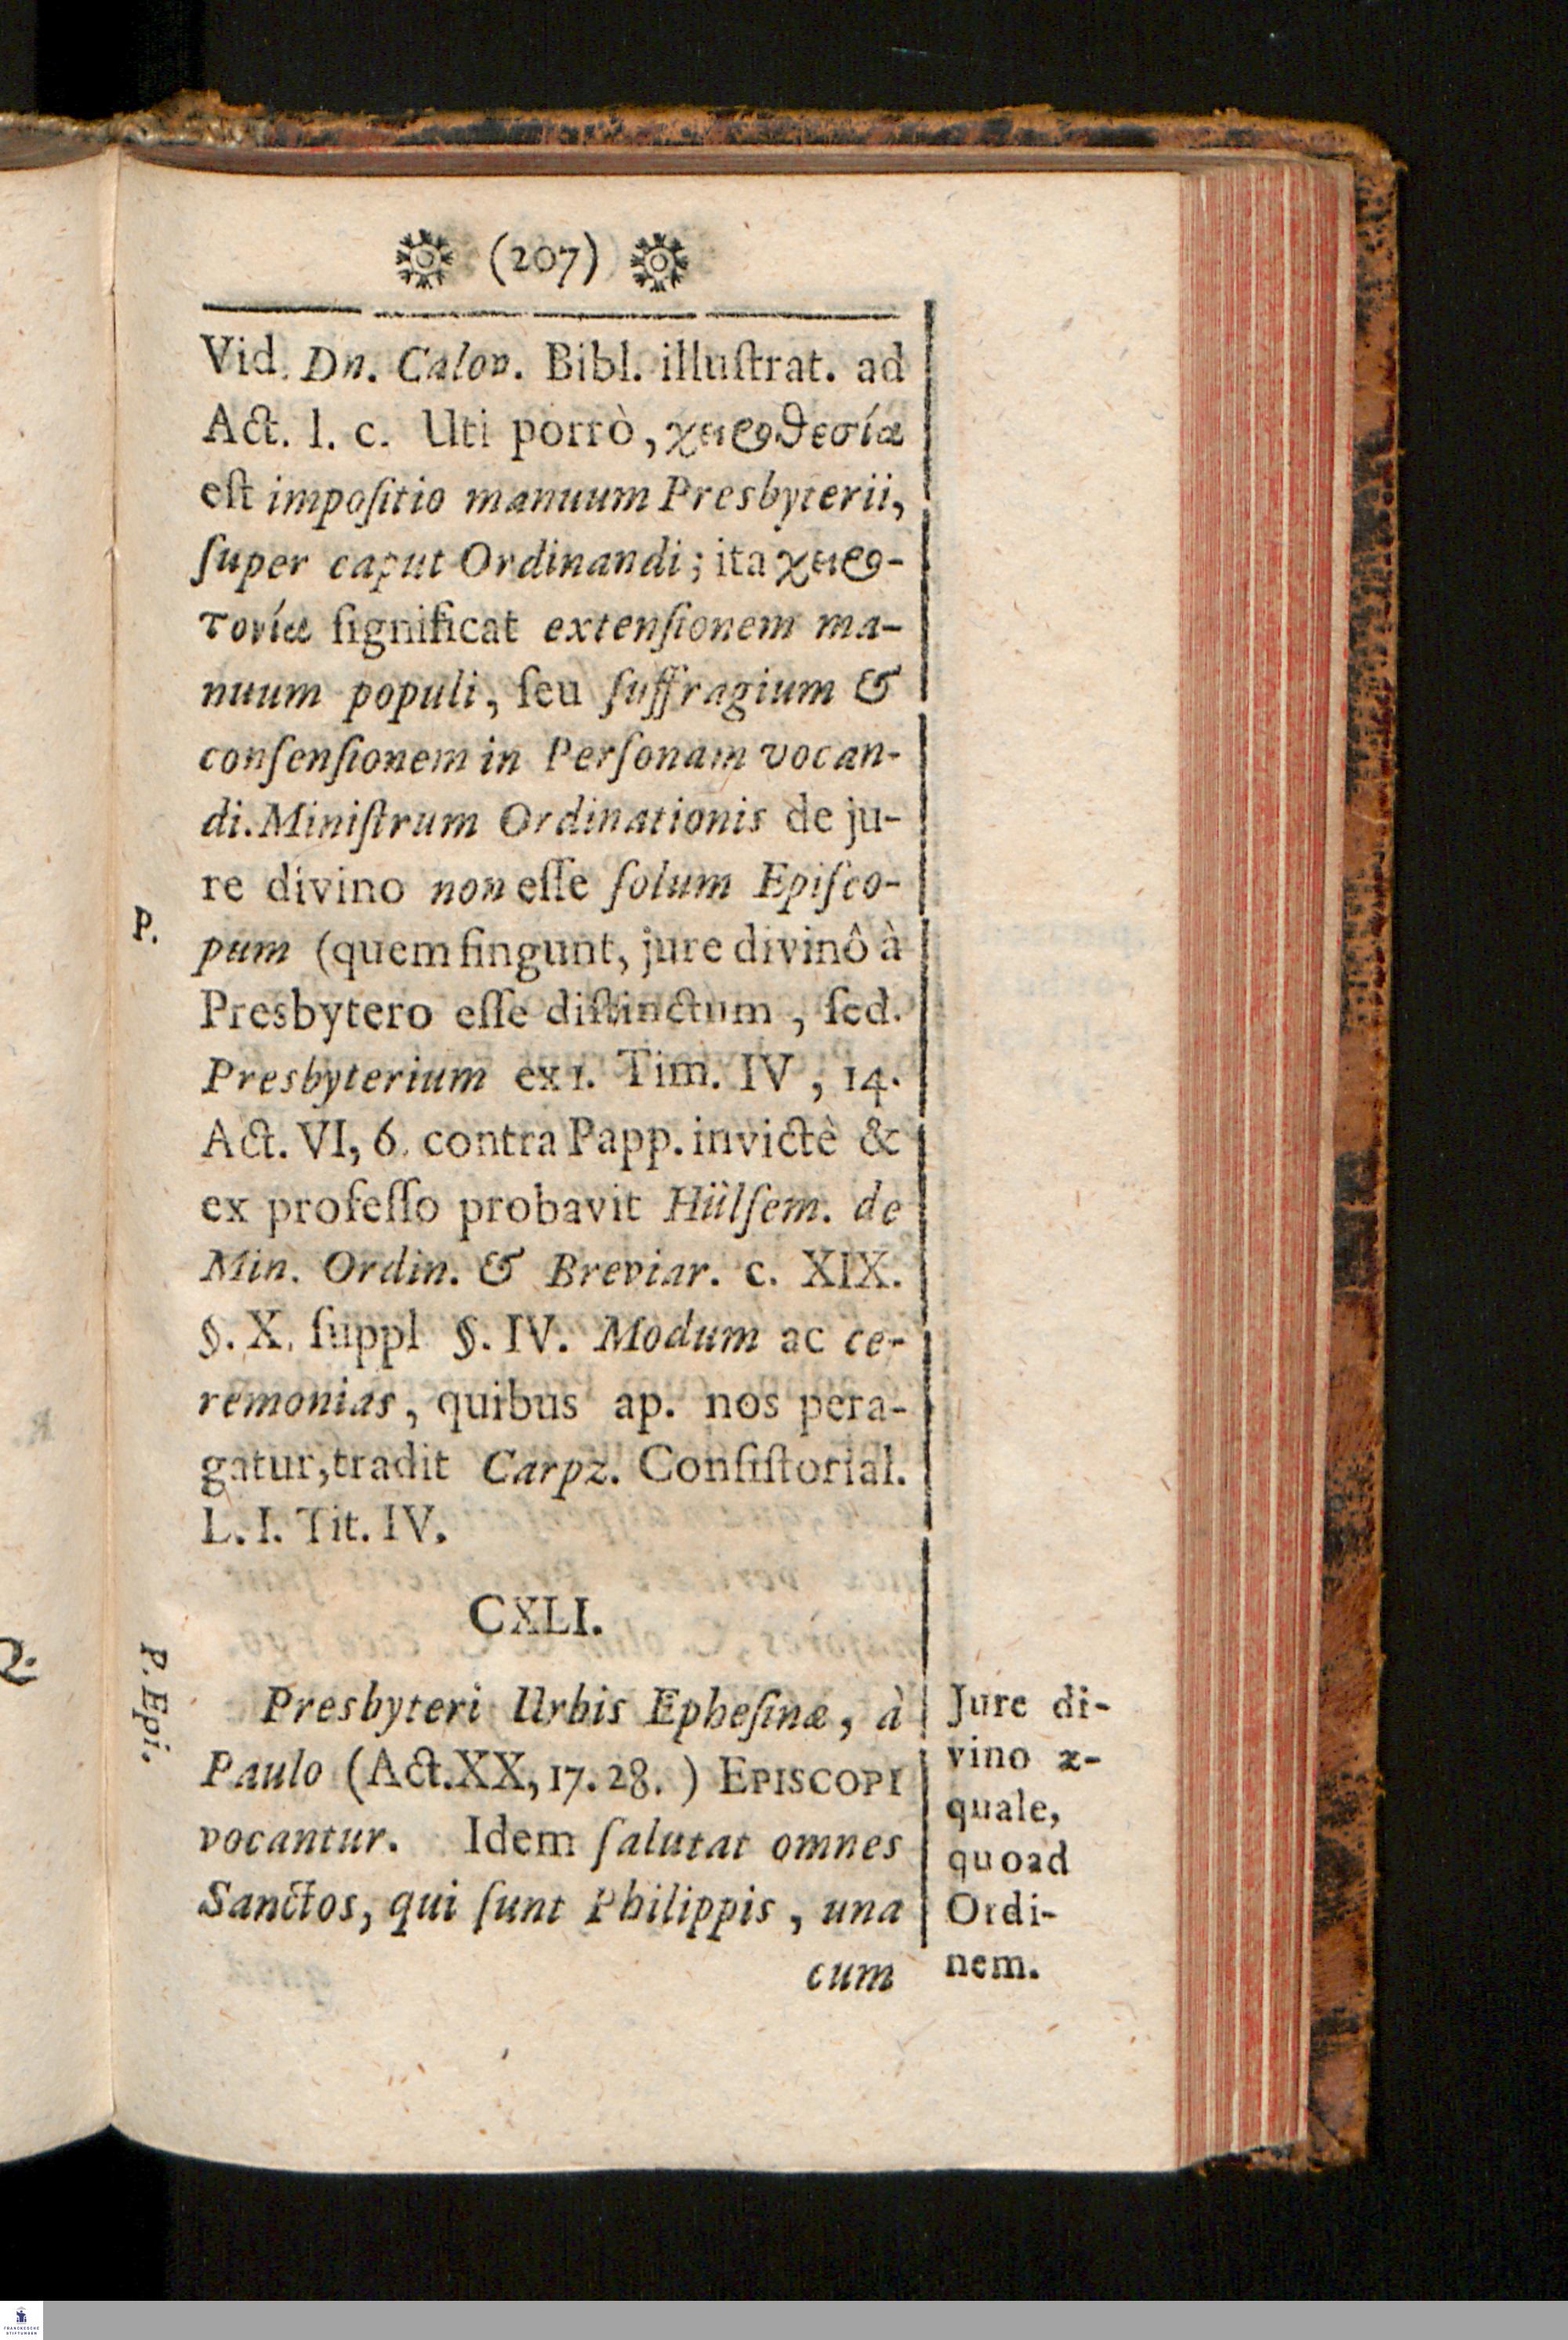 (207)
Vid. Dn. Calov. Bibl. illuſtrat. ad
Act. l. c. Uti porrò, χειροθεσία
eſt impoſitio manuum Presbyterii,
ſuper caput Ordinandi; ita χειρο-
τονία ſignificat extenſionem ma-
nuum populi, ſeu ſuffragium &
conſenſionem in Perſonam vocan-
di. Miniſtrum Ordinationis de ju-
re divino non eſſe ſolum Epiſco-
P.
pum (quem fingunt, jure divinô à
Presbytero eſſe diſtinctum, ſed.
Presbyterium ex 1. Tim. IV, 14.
Act. VI, 6. contra Papp. invictè &
ex profeſſo probavit Hülſem. de
Min. Ordin. & Breviar. c. XIX.
§. X. ſuppl §. IV. Modum ac ce-
remonias, quibus ap. nos pera-
gatur, tradit Carpz. Conſiſtorial.
L. I. Tit. IV.
CXLI.
P. Epi.
Presbyteri Urbis Epheſinæ, à
Paulo (Act. XX, 17. 28.) EPISCOPI
vocantur. Idem ſalutat omnes
Sanctos, qui ſunt Philippis, una
cum
Jure di-
vino æ-
quale,
quoad
Ordi-
nem.
FRANCKESCHE
STIFTUNGEN